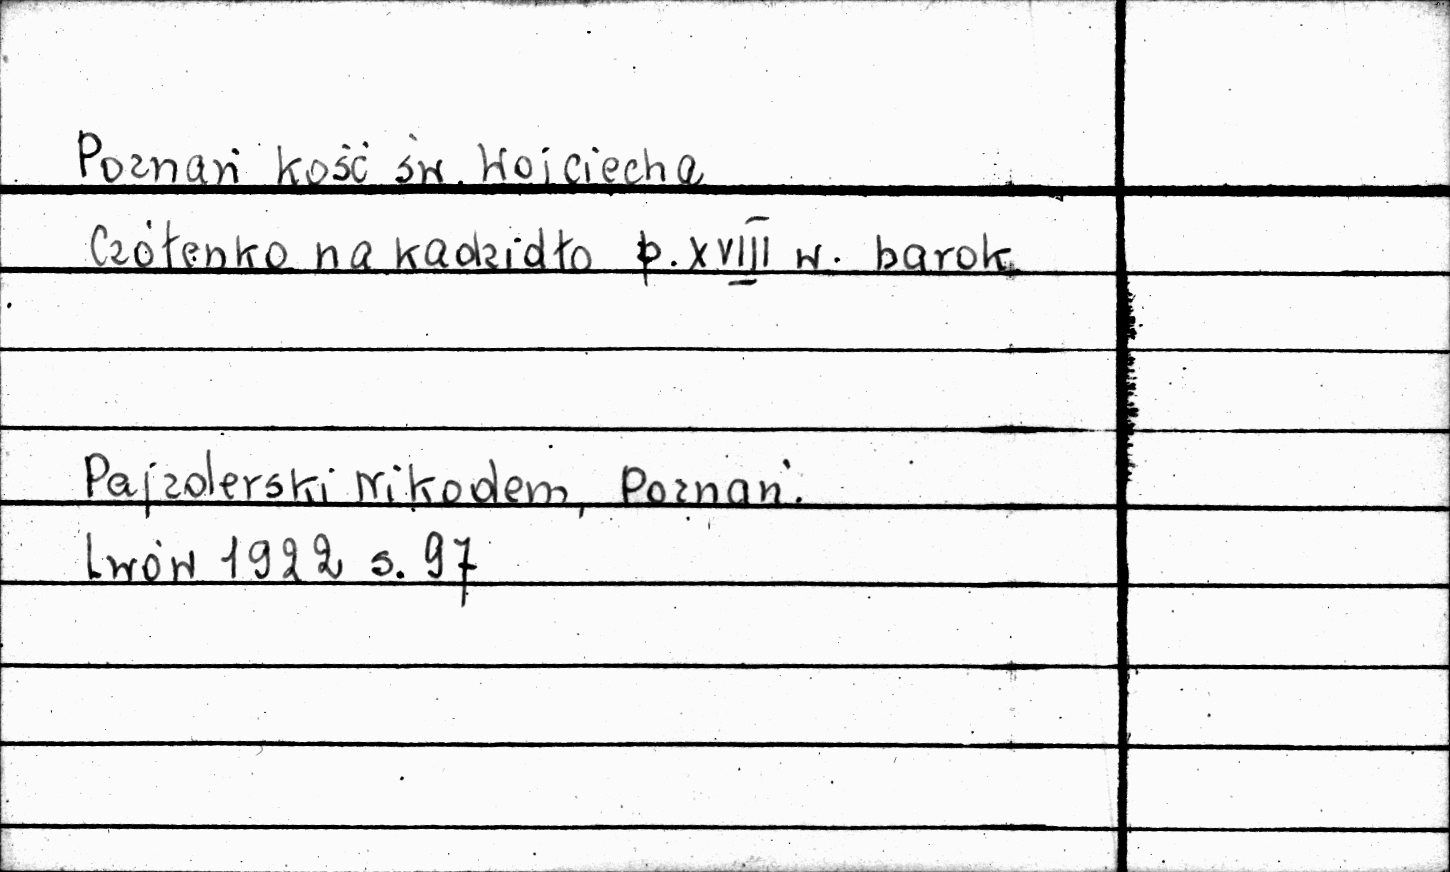 Poznań kość św. Wojciecha
Czółenko na kadzidło p. XVIII w. barok
Pajzderski Nikodem, Poznań.
Lwów 1922 s. 97